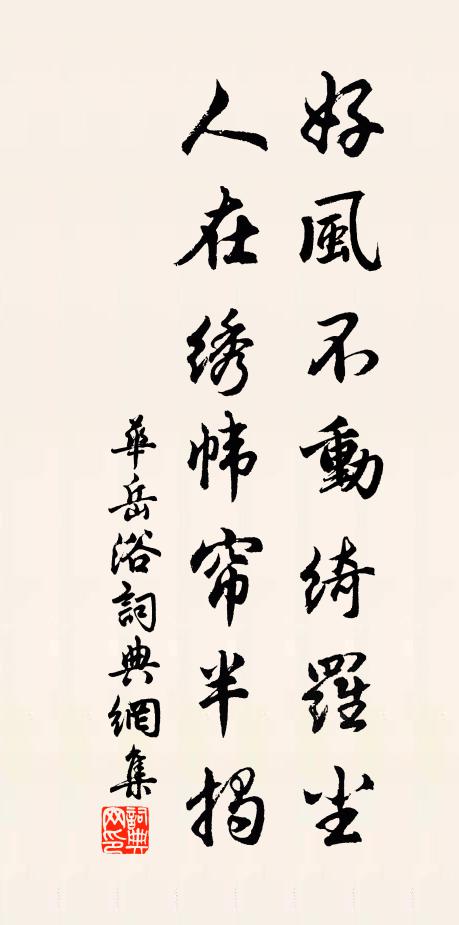 好風不動綺羅尘
人在绣帏帘半揭
華岳浴詞典網集
詞典网印